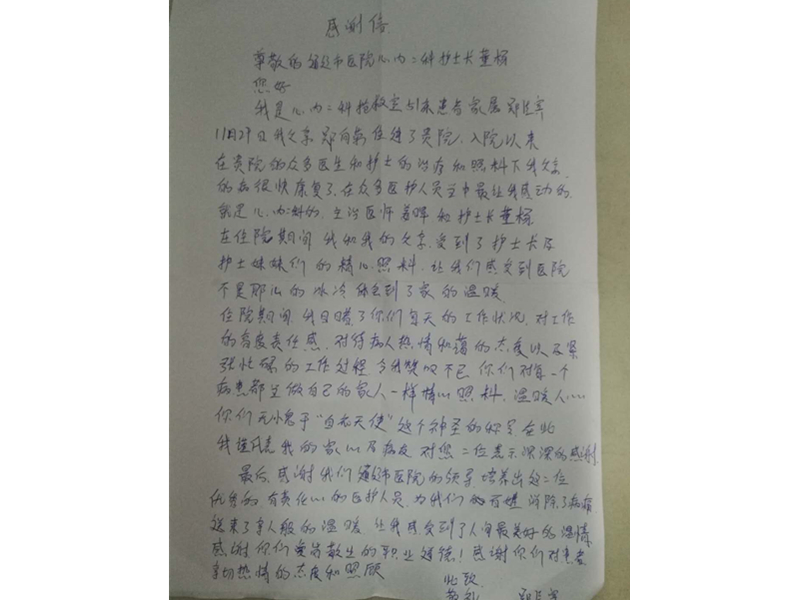 感谢信
尊敬的 市医院心内二科护士长董杨
您好
我是心内二科抢救室 床患者家属郑
11月29日我父亲郑 住进了贵院,入院以来
在贵院的众多医生和护士的治疗和照料下我父亲
的病很快康复了,在众多医护人员当中最让我感动的
就是心内二科的主治医师 和护士长董杨
在住院期间我和我的父亲受到了护士长及
护士妹妹们的精心照料,让我们感受到医院
不是那么的冰冷体会到了家的温暖
住院期间我目睹了你们每天的工作状况,对工作
的高度责任感,对待病人热情和蔼的态度以及紧
张忙碌的工作过程令我赞叹不已你们对每一个
病患都当做自己的家人一样精心照料,温暖人心
你们无愧于“白衣天使”这个神圣的称号在此
我谨代表我的家人以及病友对您二位表示深深的感谢!
最后,感谢我们 市医院的领导培养出这二位
优秀的有责任心的医护人员,为我们的 消除了病痛
送来了亲人般的温暖,让我感受到了人间最美好的温情,
感谢你们爱岗敬业的职业道德!感谢你们对患者
亲切热情的态度和照顾
此致
敬礼 郑